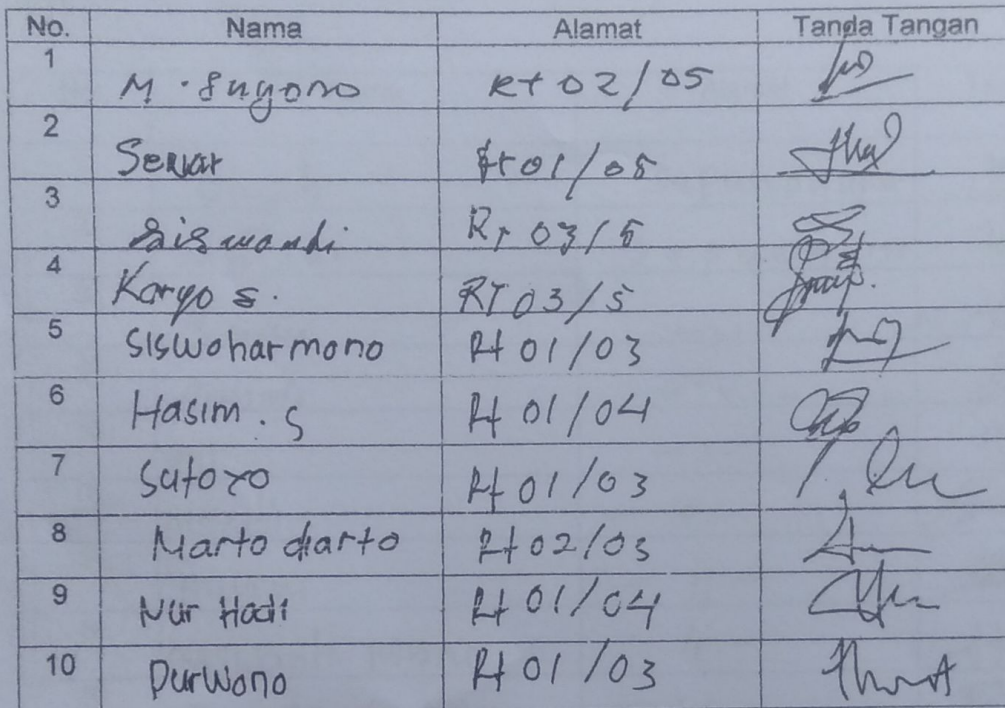 No. Nama Alamat Tanda Tangan
1 M. Sugono Rt 02/05
2 Sewar Rt 01/05
3 Siswandi RT 03/5
4 Karyo S. RT 03/5
5 Siswoharmono Rt 01/03
6 Hasim . S Rt 01/04
7 Satoyo Rt 01/03
8 Marto diarto Rt 02/03
9 Nur Hadi Rt 01/04
10 Purwono Rt 01/03